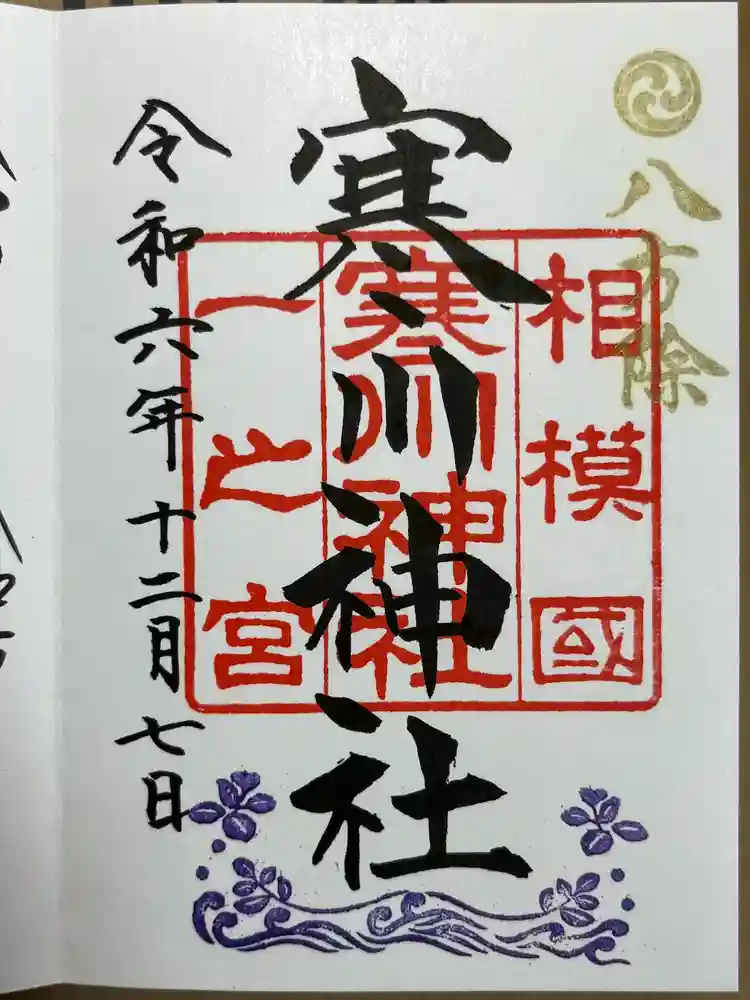 八方除
寒川神社
相模國
寒川神社
一之宮
令和六年十二月七日